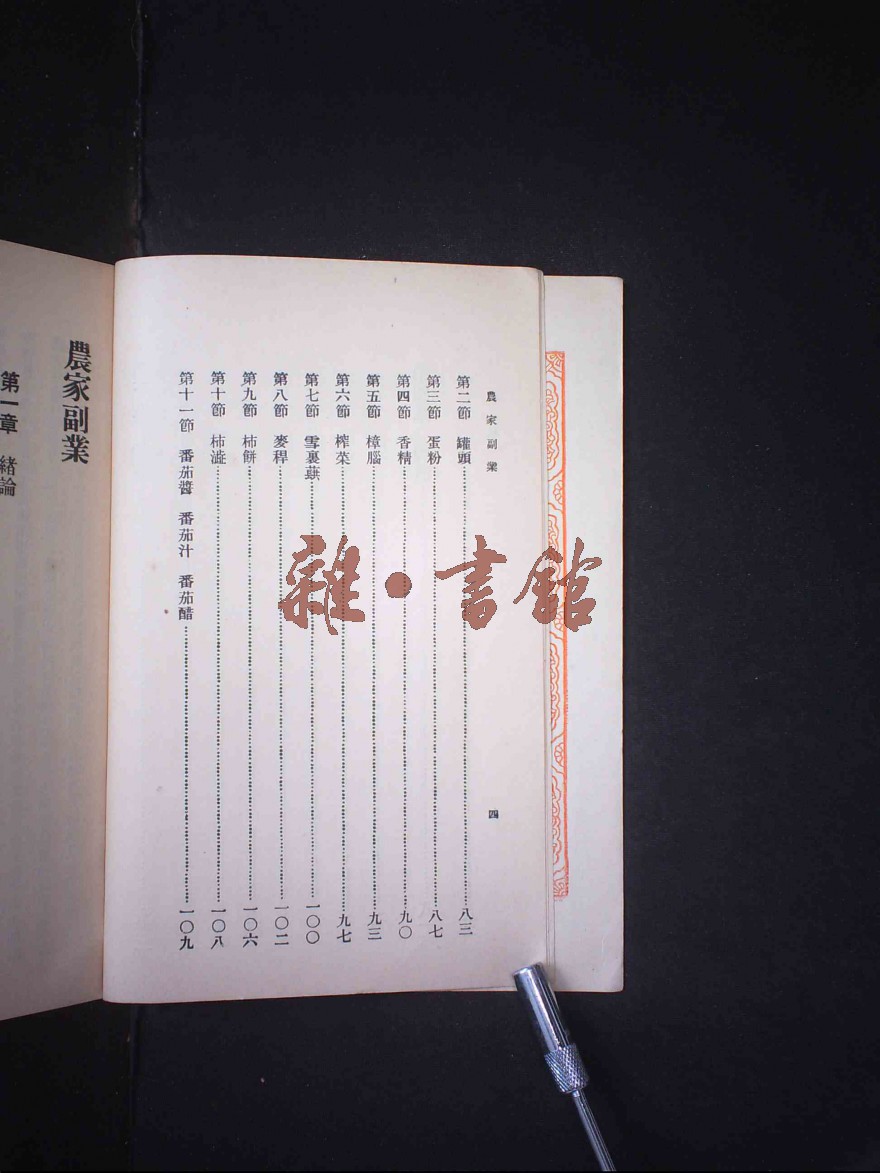 農家副業
四
第二節 罐頭……八三
第三節 蛋粉……八七
第四節 香精……九〇
第五節 樟腦……九三
第六節 榨菜……九七
第七節 雪裏蕻……一〇〇
第八節 麥稈……一〇二
第九節 柿餅……一〇六
第十節 柿漆……一〇八
第十一節 番茄醬 番茄汁 番茄醋……一〇九
農家副業
第一章 緒論
雜·書館